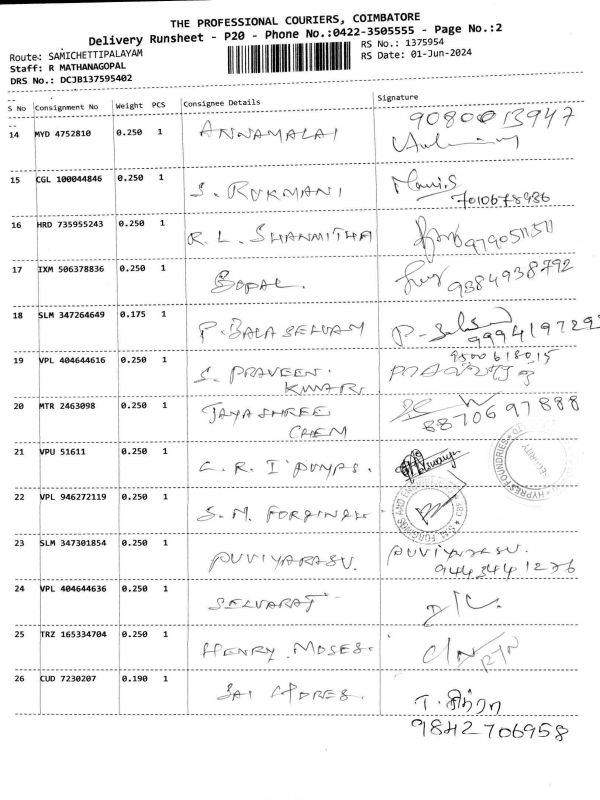 THE PROFESSIONAL COURIERS, COIMBATORE
Delivery Runsheet - P20 - Phone No.:0422-3505555 - Page No.:2
Route: SAMICHETTIPALAYAM
Staff: R MATHANAGOPAL
DRS No.: DCJB137595402
RS No.: 1375954
RS Date: 01-Jun-2024
S No Consignment No Weight PCS Consignee Details Signature
14 MYD 4752810 0.250 1 ANNAMALAI 9080013947
15 CGL 100044846 0.250 1 S. RUKMANI Mani.S
7010678986
16 HRD 735955243 0.250 1 R. L. SHANMITHA 9790511511
17 IXM 506378836 0.250 1 GOPAL. 9384938792
18 SLM 347264649 0.175 1 P. BALA SELVAM P-
9994197293
19 VPL 404644616 0.250 1 S. PRAVEEN KUMAR. 9500618015
20 MTR 2463098 0.250 1 JAYASHREE CHEM
8870697888
21 VPU 51611 0.250 1 C. R. I PUMPS.
HYPRES FOUNDRIES
SECURITY
22 VPL 946272119 0.250 1 S. M. FORGING
S.M. FORGINGS AND
23 SLM 347301854 0.250 1 PUVIYARASU. PUVIYARASU.
9443441276
24 VPL 404644636 0.250 1 SELVARAJ D/C.
25 TRZ 165334704 0.250 1 HENRY. MOSES. C/N RTN
26 CUD 7230207 0.190 1 SAI T. சித்ரா
9842706958